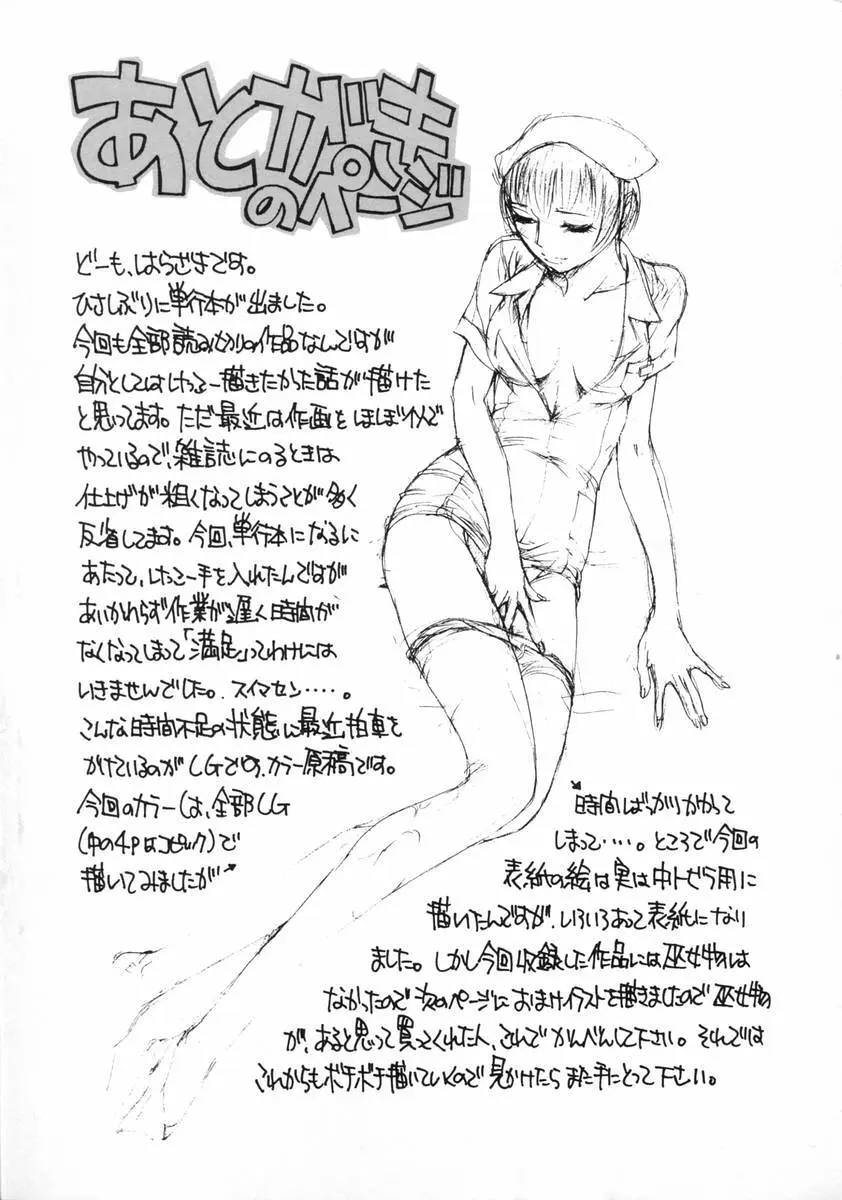 あとがき
のページ
どーも、はらざきです。
ひさしぶりに単行本が出ました。
今回も全部読みきりの作品なんですが
自分としてはけっこー描きたかった話が描けた
と思ってます。ただ最近は作画をほぼ1人で
やっているので、雑誌にのるときは
仕上げが粗くなってしまうことが多く
反省してます。今回、単行本になるに
あたって、けっこー手を入れたんですが
あいかわらず作業が遅く時間が
なくなってしまって「満足」ってわけには
いきませんでした。スイマセン‥‥。
こんな時間不足の状態に最近拍車を
かけているのがCGです、カラー原稿です。
今回のカラーは、全部CG
(中の4Pはコピック)で
描いてみましたが
時間ばっかりかかって
しまって‥‥。ところで今回の
表紙の絵は実は中トビラ用に
描いたんですが、いろいろあって表紙になり
ました。しかし今回収録した作品には巫女物は
なかったので次のページにおまけイラストを描きましたので巫女物
が、あると思って買ってくれた人、これでかんべんして下さい。それでは
これからもボチボチ描いていくので見かけたらまた手にとって下さい。